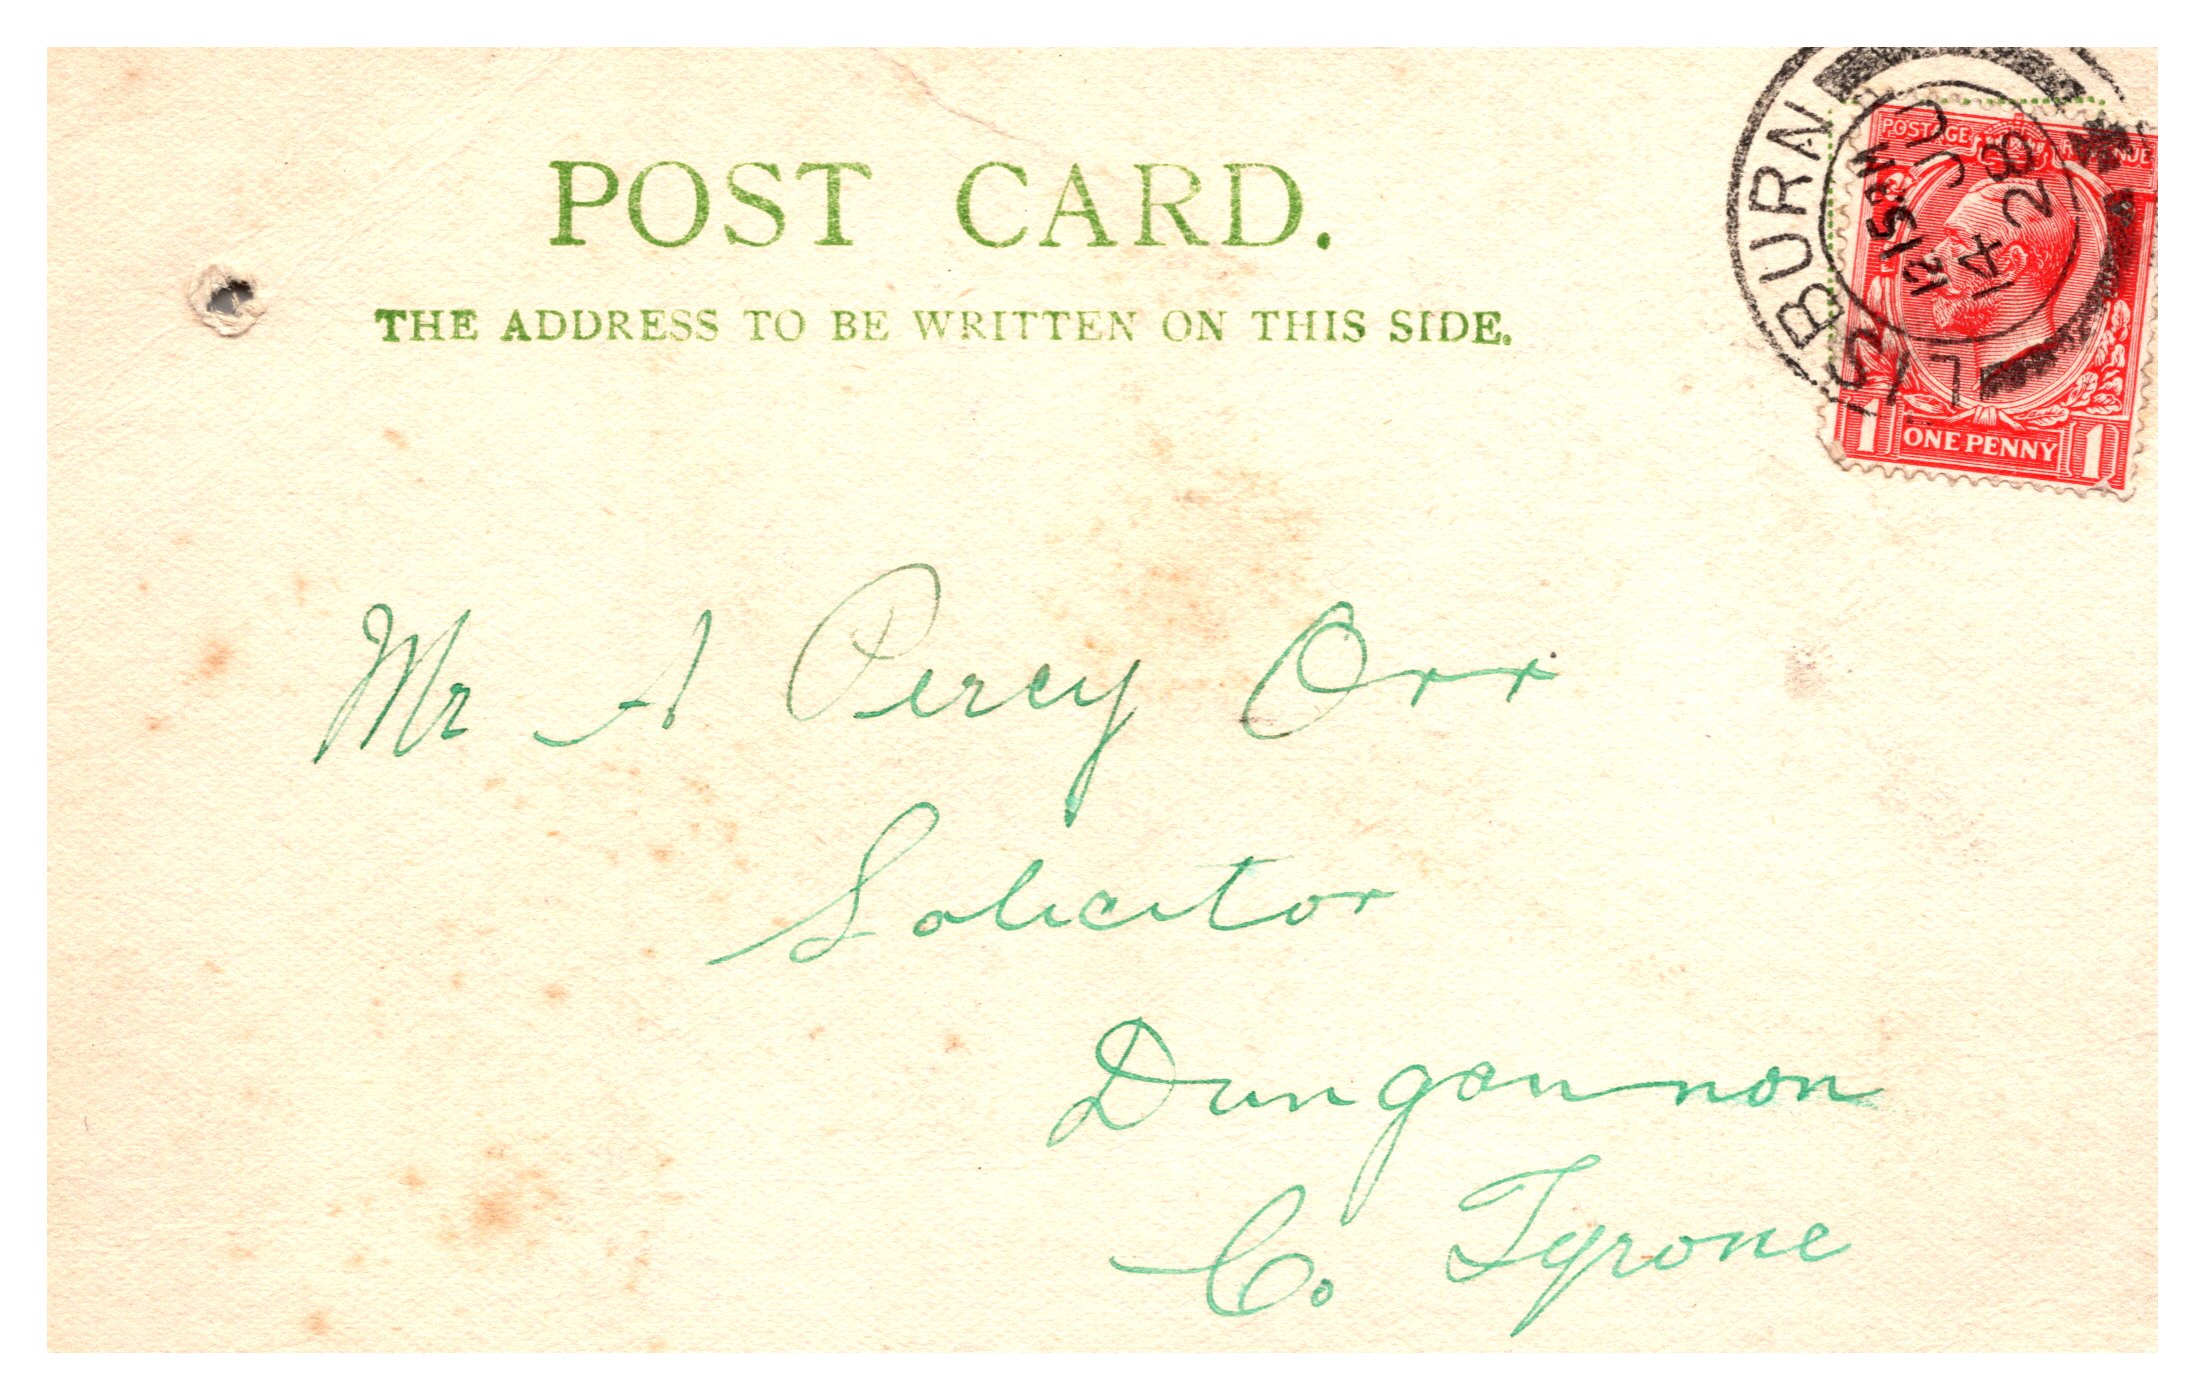 POST CARD.
THE ADDRESS TO BE WRITTEN ON THIS SIDE.
LISBURN
5 15 PM
14 JU
28
POSTAGE REVENUE
1 ONE PENNY 1
Mr A Percy Orr
Solicitor
Dungannon
Co. Tyrone